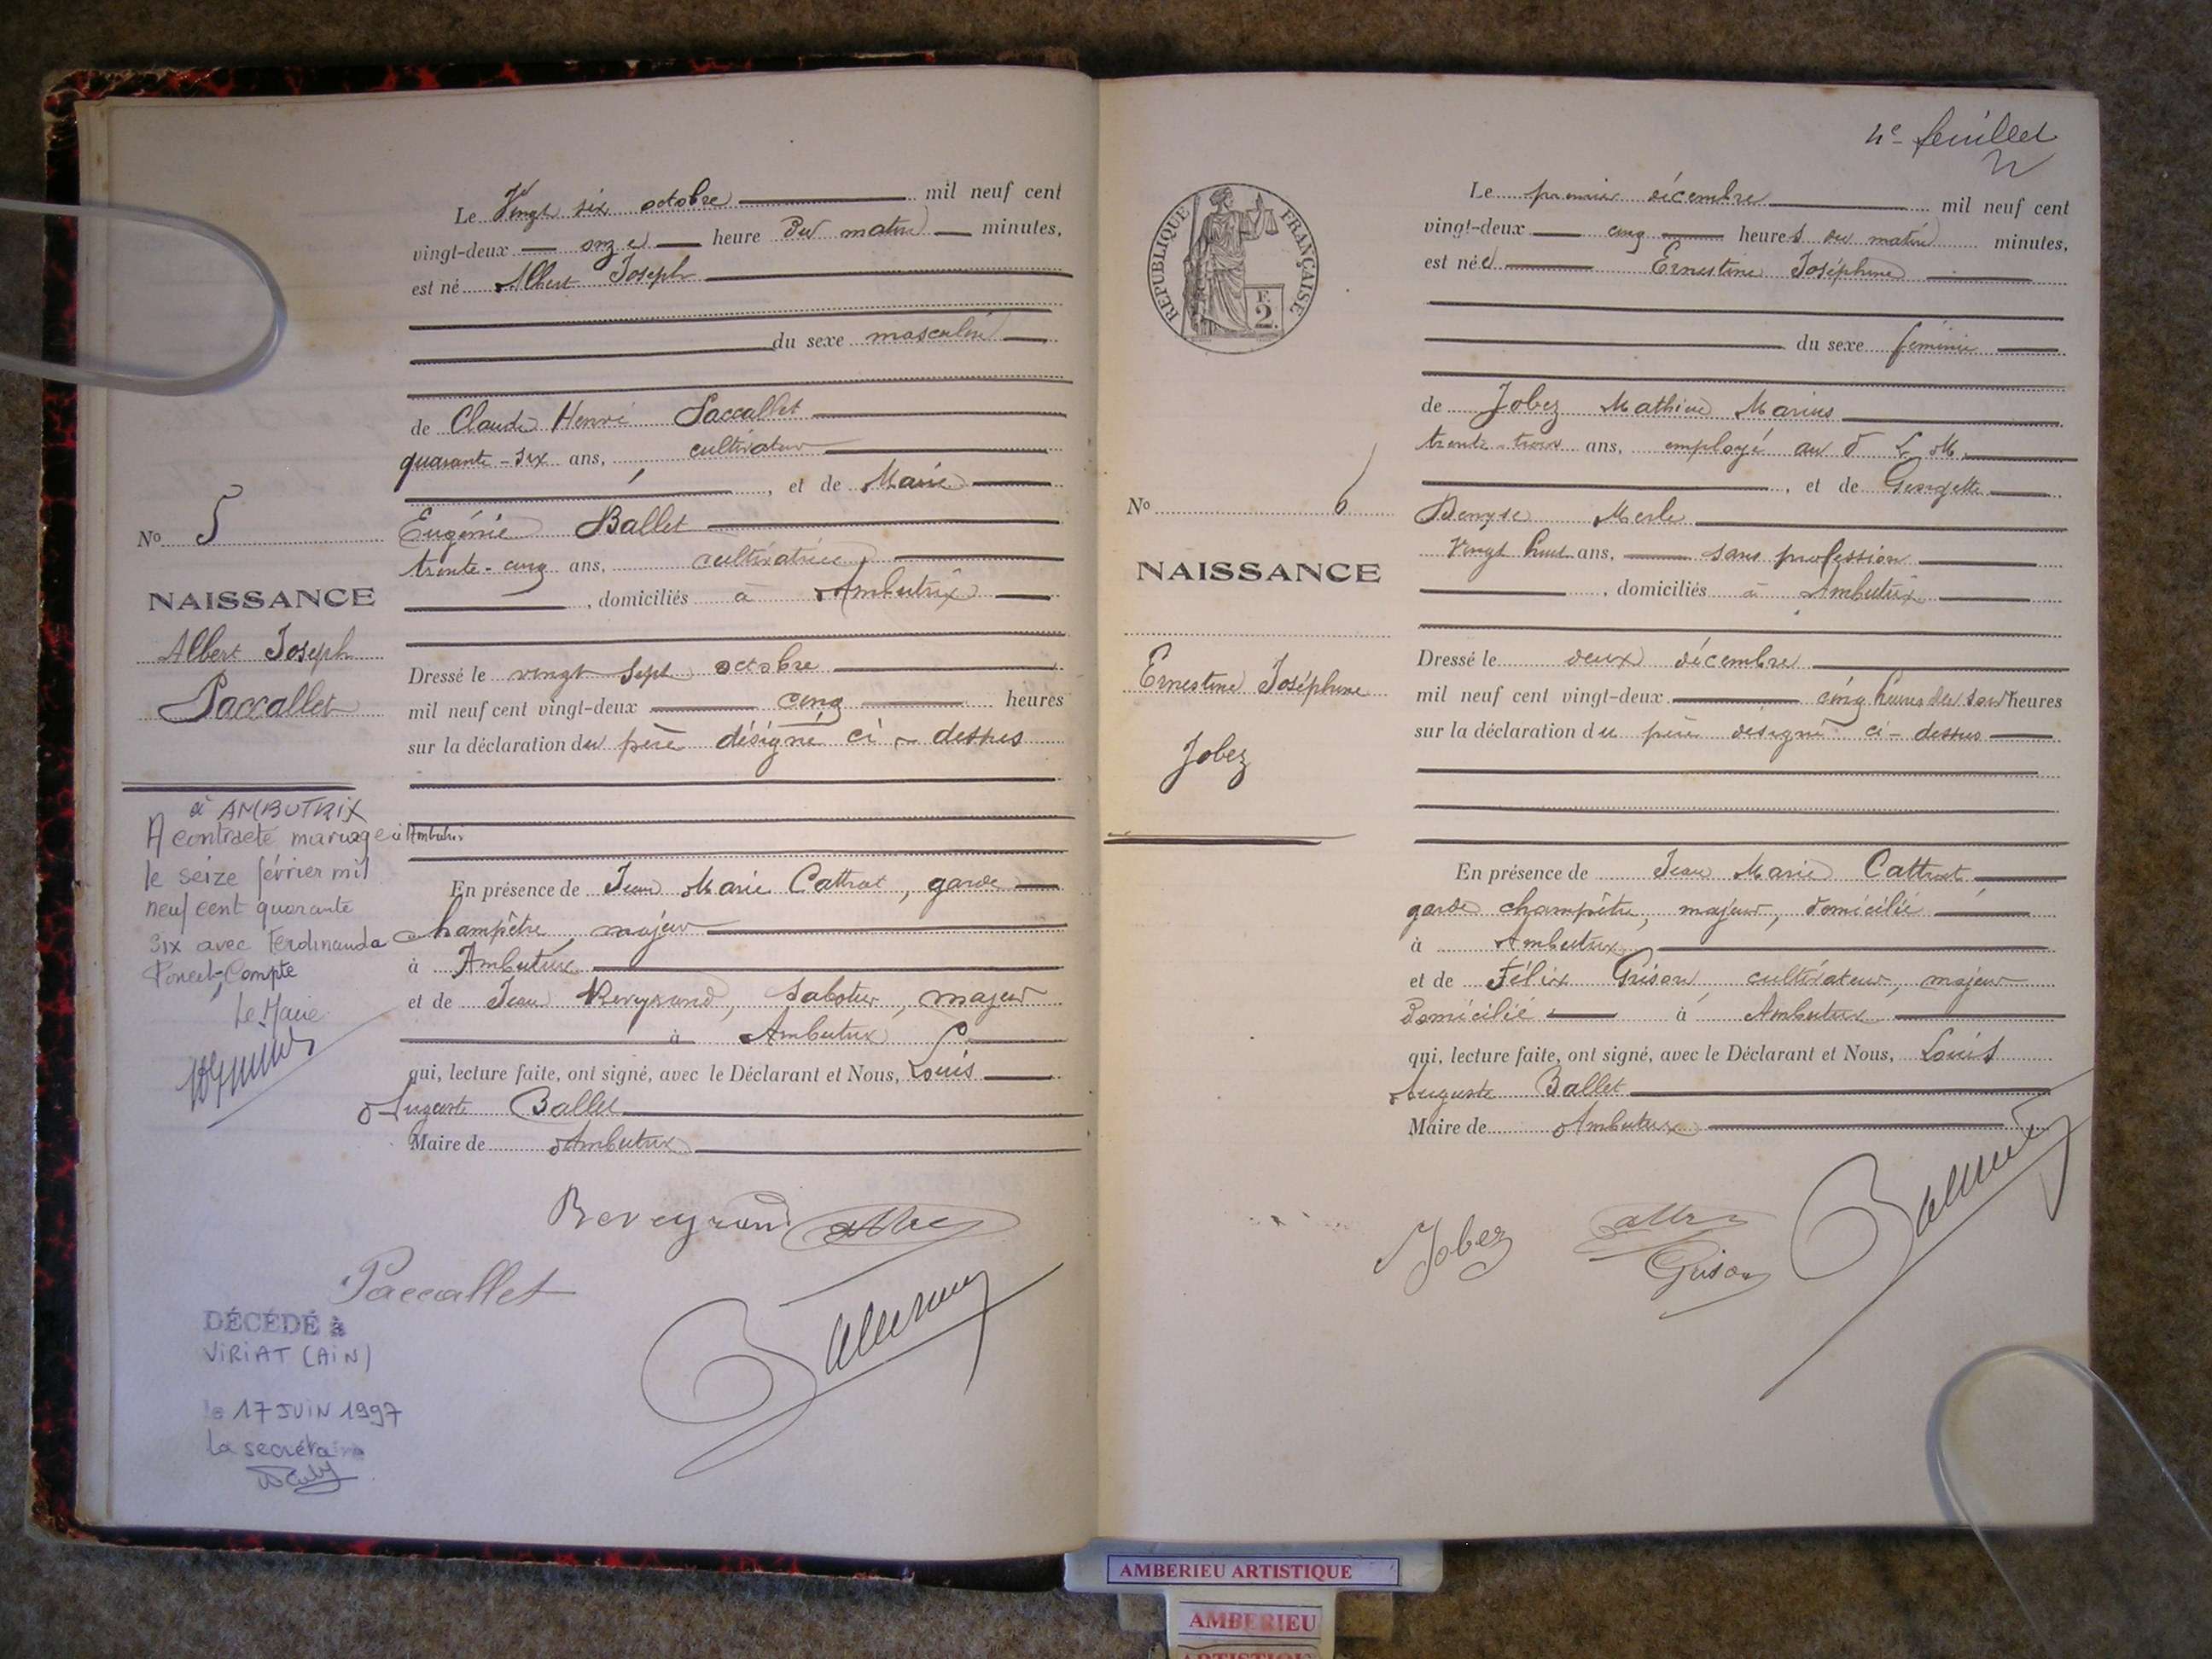 Le Vingt six octobre mil neuf cent
vingt-deux onze heure du matin minutes,
est né Albert Joseph
du sexe masculin
de Claude Henri Paccallet
quarante-six ans, cultivateur
, et de Marie
Eugénie Ballet
trente-cinq ans, cultivatrice
, domiciliés à Ambutrix
Dressé le vingt sept octobre
mil neuf cent vingt-deux cinq heures
sur la déclaration du père désigné ci-dessus
En présence de Jean Marie Cattrat, garde
champêtre, majeur
à Ambutrix
et de Jean Reveyrand, sabotier, majeur
à Ambutrix
qui, lecture faite, ont signé, avec le Déclarant et Nous, Louis
Auguste Ballet
Maire de Ambutrix
Reveyrand
Paccallet
No 5
NAISSANCE
Albert Joseph
Paccallet
à AMBUTRIX
A contracté mariage à Ambutrix
le seize février mil
neuf cent quarante
six avec Ferdinanda
Poncet-Compte
Le Maire
DÉCÉDÉ à
VIRIAT (AIN)
le 17 JUIN 1997
La secrétaire
4e feuillet
RÉPUBLIQUE FRANÇAISE
F.
2.
Le premier décembre mil neuf cent
vingt-deux cinq heures du matin minutes,
est née Ernestine Joséphine
du sexe féminin
de Jobez Mathieu Marius
trente-trois ans, employé au P. L. M.
, et de Georgette
Denyse Merle
vingt huit ans, sans profession
, domiciliés à Ambutrix
Dressé le deux décembre
mil neuf cent vingt-deux cinq heures du soir heures
sur la déclaration du père désigné ci-dessus
En présence de Jean Marie Cattrat
garde champêtre, majeur, domicilié
à Ambutrix
et de Félix Grison, cultivateur, majeur
Domicilié à Ambutrix
qui, lecture faite, ont signé, avec le Déclarant et Nous, Louis
Auguste Ballet
Maire de Ambutrix
Jobez
Grison
No 6
NAISSANCE
Ernestine Joséphine
Jobez
AMBERIEU ARTISTIQUE
AMBERIEU
ARTISTIQUE